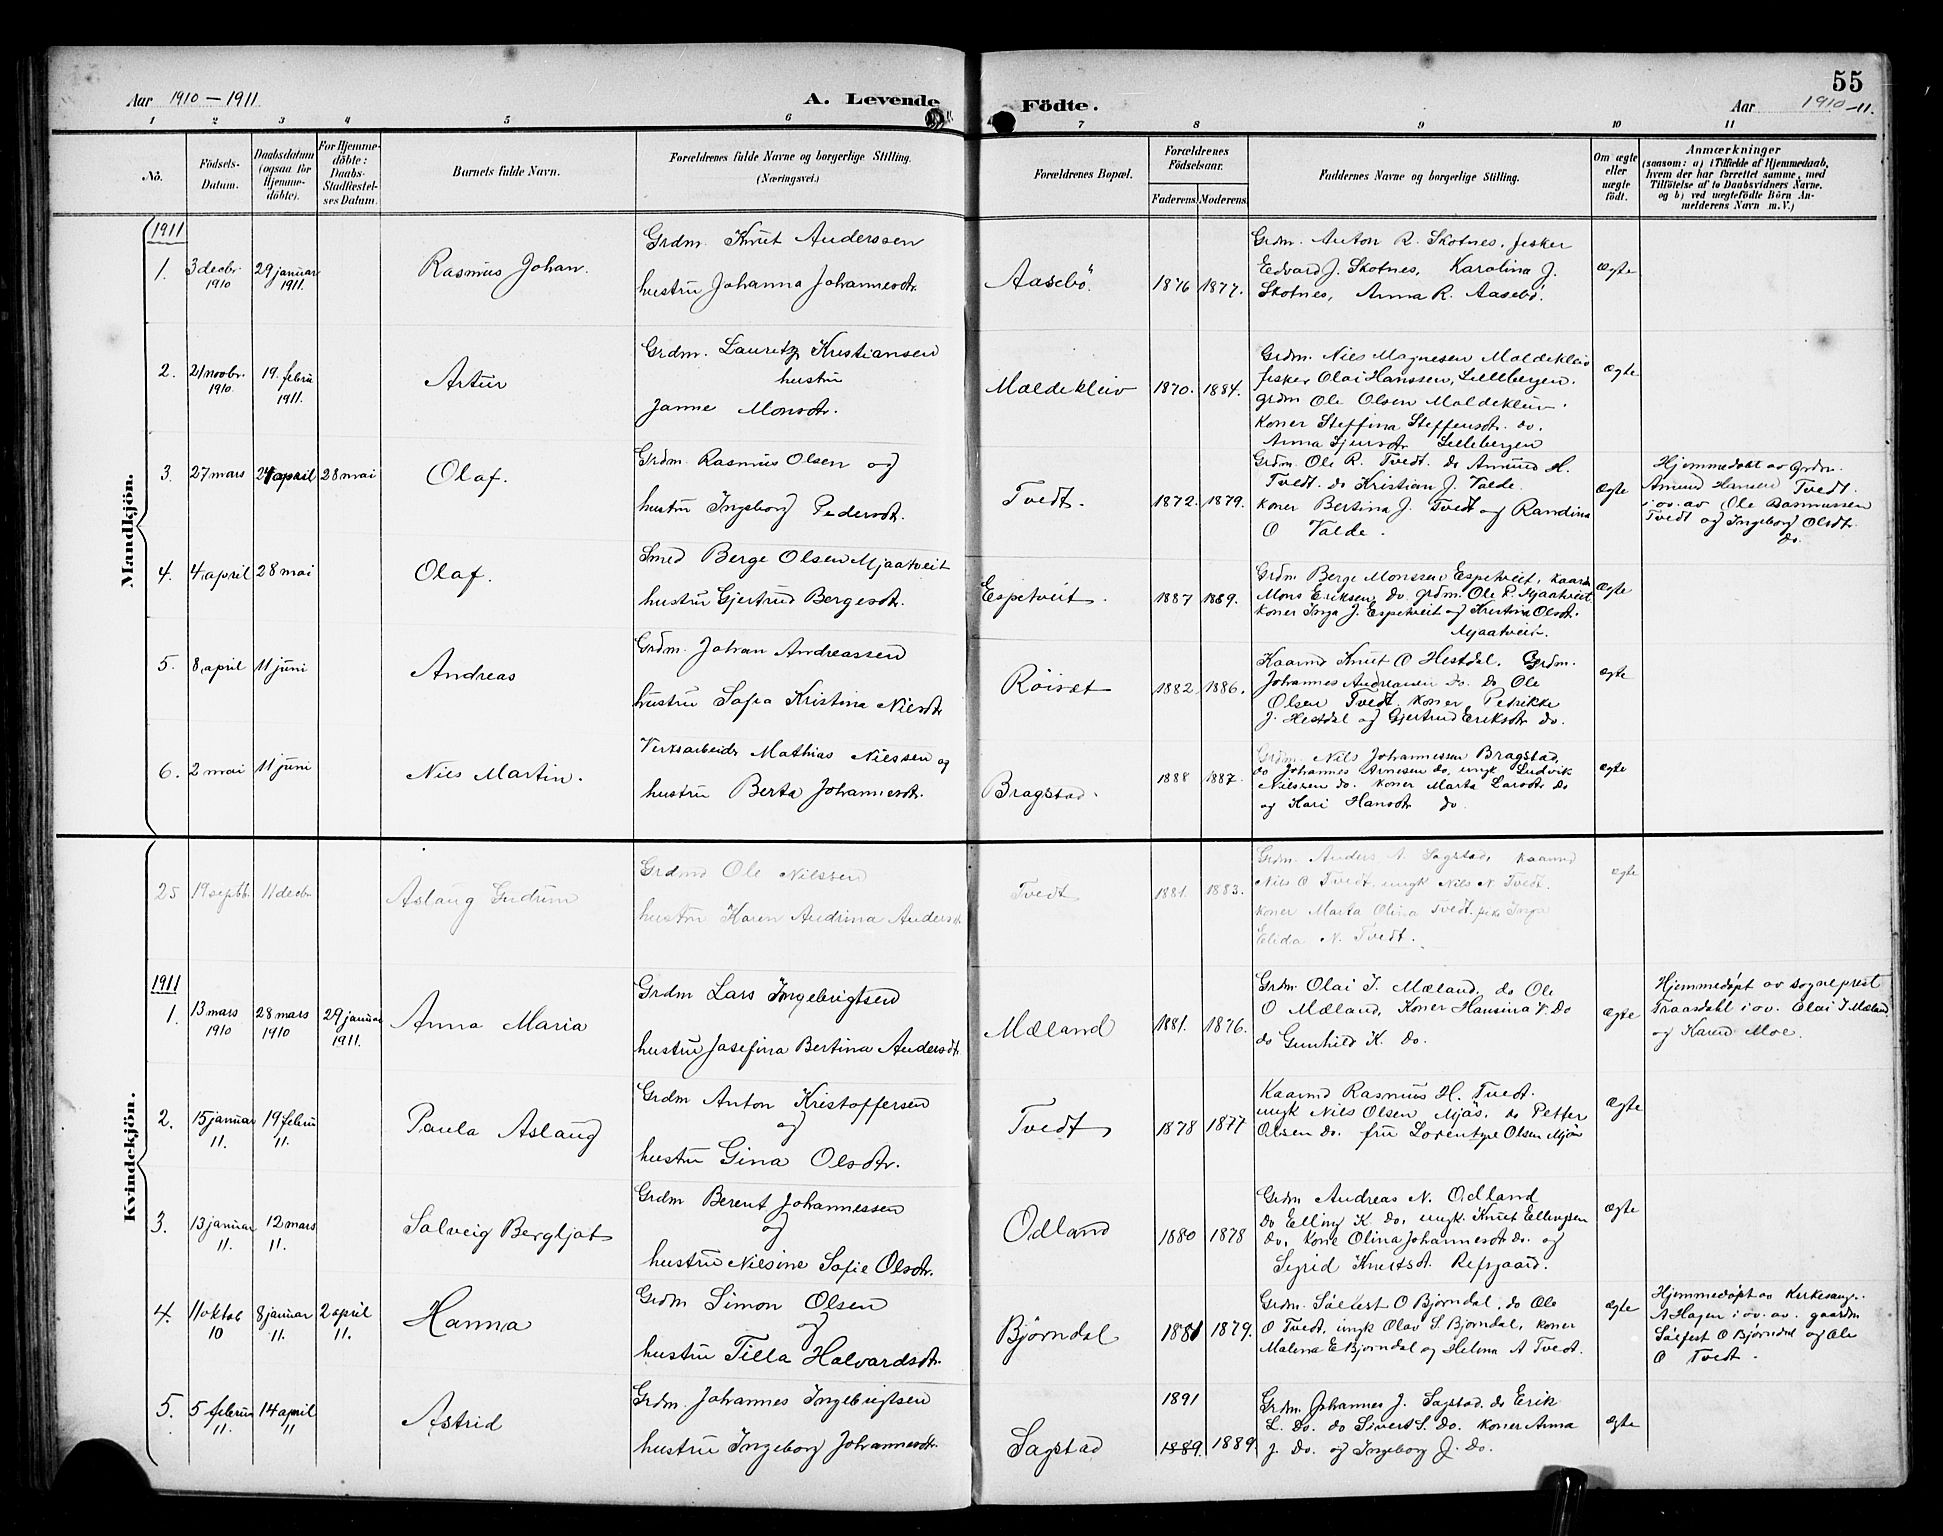 55
Aar 1910 – 1911. A. Levende Födte. Aar 1910-11.
1 2 3 4 5 6 7 8 9 10 11
Nö. Födsels-Datum. Daabsdatum (ogsaa for Hjemme-döbte). For Hjemme-döbte: Daabs-Stadfæstel-ses Datum. Barnets fulde Navn. Forældrenes fulde Navne og borgerlige Stilling. (Næringsvei.) Forældrenes Bopæl. Forældrenes Födselsaar. Faderens Moderens Faddernes Navne og borgerlige Stilling. Om ægte eller uægte födt. Anmærkninger (saasom: a) i Tilfælde af Hjemmedaab, hvem der har forrettet samme, med Tilföielse af to Daabsvidners Navne, og b) ved uægtefödte Börn An-melderens Navn m. V.)
Mandkjön.
1911
1. 3 decbr. 1910 29 januar 1911. Rasmus Johan. Grdm. Knut Anderssen
hustru Johanna Johannesdtr. Aasebö. 1876 1877. Grdm. Anton R. Skotnes, fisker
Edvard J. Skotnes, Karolina J.
Skotnes, Anna R. Aasebö. Ægte
2. 21 novbr. 1910 19. febru 1911. Artur Grdm. Lauretz Kristiansen
hustru
Janne Monsdtr. Maldekleiv 1870. 1884. Grdm. Nils Magnesen Maldekleiv
fisker Olai Hanssen, Lillebergen.
grdm Ole Olsen Maldekleiv.
Koner Steffina Steffensdtr. do.
Anna Sjursdtr Lillebergen Ægte
3. 27 mars april 28 mai Olaf. Grdm. Rasmus Olsen og
hustru Ingeborg Pedersdtr. Tvedt. 1872. 1879. Grdm. Ole R. Tvedt. do Amund H.
Tvedt. do Kristian J. Valde.
Koner Bertina J. Tvedt og Randina
O Valde. Ægte Hjemmedøbt av grdm.
Amund Hansen Tvedt.
i ov. av Ole Rasmussen
Tvedt og Ingeborg Olsdtr.
do.
4. 4. april 28 mai Olaf. Smed Berge Olsen Mjaatveit
hustru Gjertrud Bergesdtr. Espetveit. 1887 1889. Grdm Berge Monssen Espetveit, kaarm
Mons Eriksen, do. grdm. Ole P. Mjaatveit
koner Inga J. Espetveit og Kristina Olsdtr.
Mjaatveit. Ægte
5. 8. april 11 juni Andreas Grdm. Johan Andreassen
hustru Sofia Kristina Nilsdtr Röiset 1882. 1886. Kaarmd Knut O Hestdal. Grdm.
Johannes Andreasen do. do Ole
Olsen Tvedt. koner Petrikke
J. Hestdal og Gjertrud Eriksdtr do. ægte
6. 2 mai 11 juni Nils Martin. Verksarbeidr Mathias Nilssen og
hustru Berta Johannesdtr. Bragstad. 1888 1887. Grdm. Nils Johannessen Bragstad,
do Johannes Arnesen do, ungk Ludvik
Nilssen do. koner Marta Larsdtr do
og Kari Hansdtr do. ægte
Kvindekjön.
25 19 septbr. 11 decbr Aslaug Gudrun Grdmd Ole Nilssen
hustru Karen Andrina Andersdtr Tvedt 1881. 1883. Grdm. Anders A. Sagstad, kaarmd
Nils O Tvedt. ungk Nils N. Tvedt.
koner Marta Olina Tvedt. pike Inga
Elida N. Tvedt. ægte
1911
1. 13 mars 1910 28 mars 1910 29 januar 1911. Anna Maria Grdm Lars Ingebrigtsen
hustru Josefina Bertina Andersdtr. Mæland 1881. 1876. Grdm. Olai I. Mæland. do Ole
O Mæland, Koner Hansina V. do
do Gunhild K. do. ægte Hjemmedøpt av sogneprest
Fraasdahl i ov. Olai I Mæland
og Karen Moe.
2. 15 januar 11. 19 febru 11. Paula Aslaug Grdm Anton Kristoffersen
og
hustru Gina Olsdtr. Tvedt 1878 1877 Kaarmd Rasmus H. Tvedt.
ungk Nils Olsen Mjøs. do Petter
Olsen do. fru Olsen Mjøs Ægte
3. 13 januar 11. 12 mars 11. Solveig Bergljot Grdm Berent Johannessen
og
hustru Nilsine Sofie Olsdtr. Odland 1880 1878 Grdm Andreas N. Odland
do Elling K. do, ungk. Knut Ellingsen
do, kone Olina Johannesdtr do. og
Sigrid Knutsdt. Refsgaard. Ægte
4. 11 oktob 10 8 januar 11. 2 april 11. Hanna Grdm Simon Olsen
og
hustru Tilla Halvardsdtr. Björndal 1881 1879. Grdm. Sölfest O Björndal, do Ole
O Tvedt, ungk Olav S. Björndal, koner
Malena E Bjorndal og Helena A Tvedt. ægte Hjemmedøpt av Kirkesang.
A Hagen i ov. av. gaardm
Sölfest O Björndal og Ole
O Tvedt.
5. 5 februa 11. 14 april 11 Astrid Grdm. Johannes Ingebrigtsen
hustru Ingeborg Johannesdtr. Sagstad 1891 1889. 1889. Grdm. Johannes J. Sagstad. do Erik
L. do. do Sivert S. do. koner Anna
J. do. og Ingeborg J. do. ægte